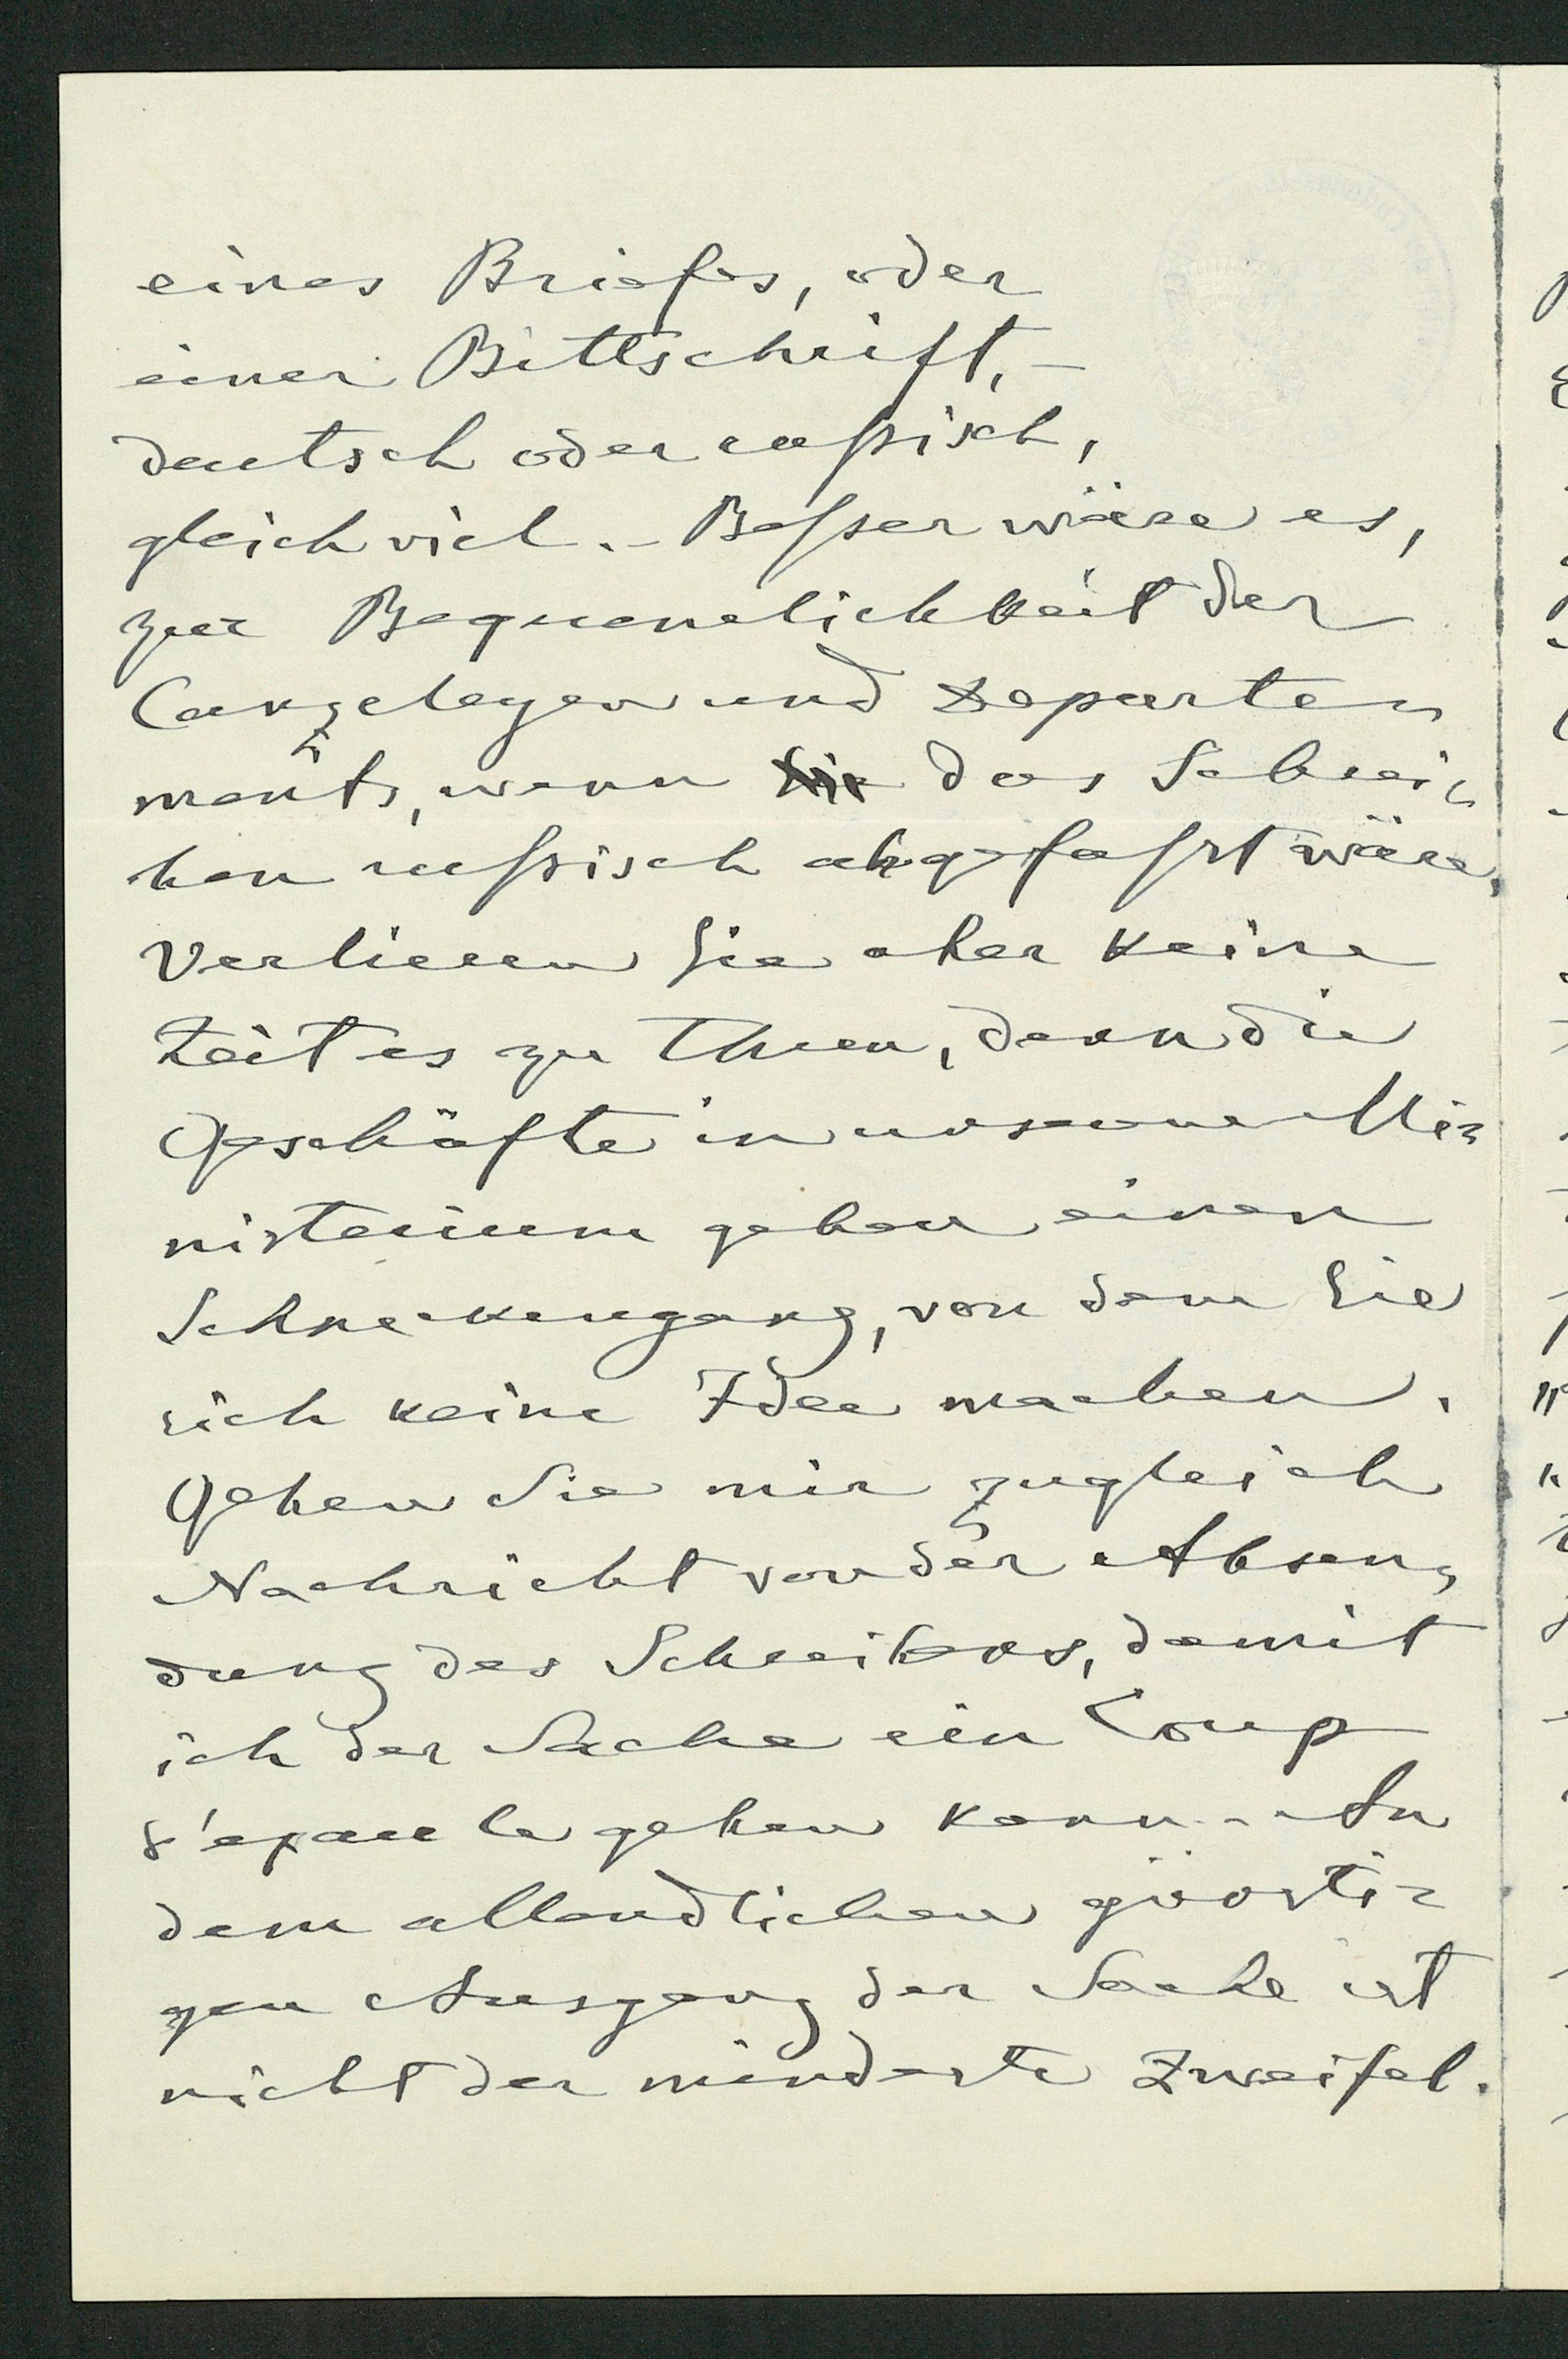 eines Briefes, oder
einer Bittschrift, –
deutsch oder russisch,
gleichviel. – Besser wäre es,
zur Bequemlichkeit der
Canzeleyen und Departe-
ments, wenn das Schrei-
ben russisch abgefasst wäre.
Verlieren Sie aber keine
Zeit es zu thuen, denn die
Geschäfte in unserem Mi-
nisterium gehen einen
Schneckengang, von dem Sie
sich keine Idee machen.
Geben Sie mir zugleich
Nachricht von der Absen-
dung des Schreibens, damit
ich der Sache ein Coup
d'epaule geben kann. – An
dem allendlichen günsti-
gen Ausgang der Sache ist
nicht der mindeste Zweifel.